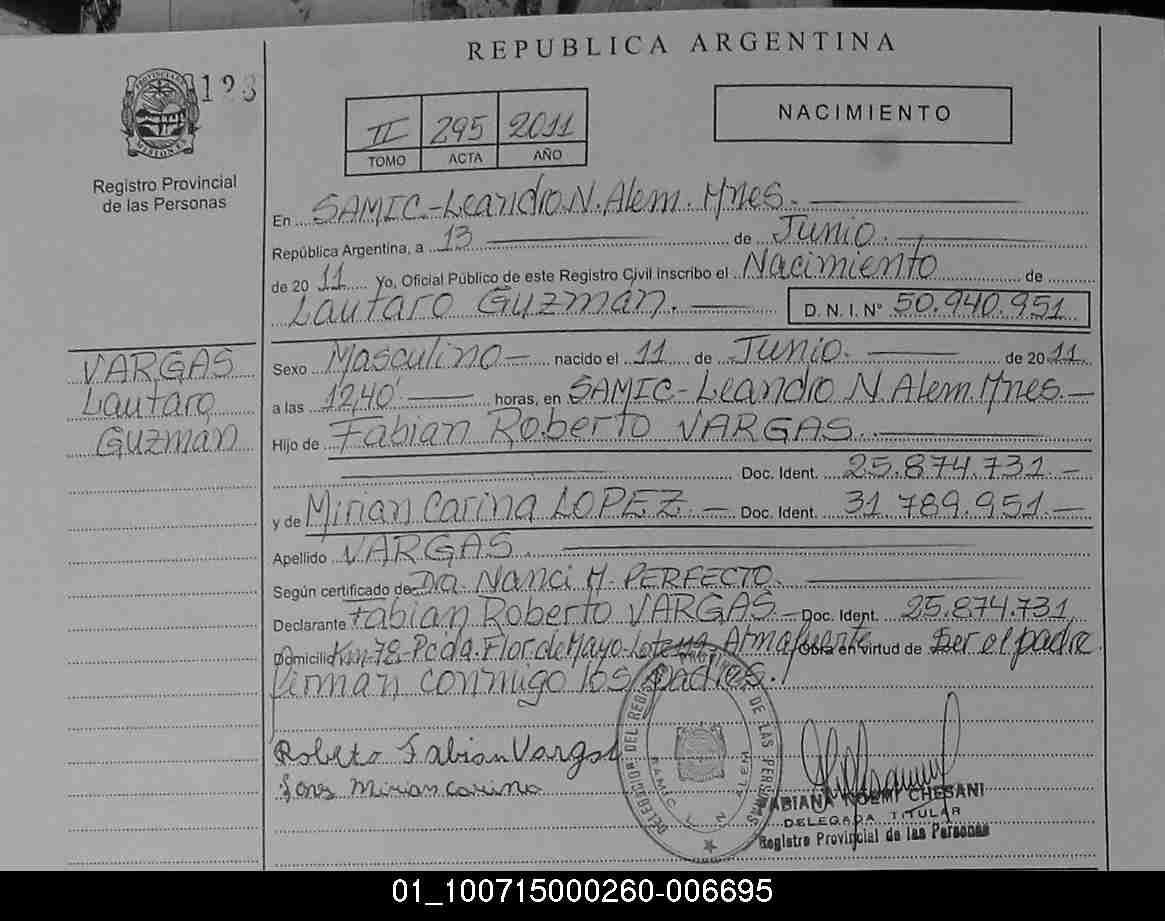 REPUBLICA ARGENTINA
PROVINCIA DE MISIONES
123
Registro Provincial
de las Personas
II 295 2011
TOMO ACTA AÑO
NACIMIENTO
En SAMIC-Leandro N. Alem. Mnes.
República Argentina, a 13 de Junio.
de 20 11 Yo, Oficial Público de este Registro Civil inscribo el Nacimiento de
Lautaro Guzmán. D.N.I.Nº 50.940.951
VARGAS
Lautaro
Guzmán
Sexo Masculino nacido el 11 de Junio. de 2011.
a las 12,40' horas, en SAMIC-Leandro N. Alem. Mnes.
Hijo de Fabian Roberto VARGAS
Doc. Ident. 25.874.731.
y de Mirian Carina LOPEZ Doc. Ident. 31.789.951.
Apellido VARGAS.
Según certificado de Dra. Nanci M. PERFECTO.
Declarante Fabian Roberto VARGAS Doc. Ident. 25.874.731
Domicilio Km 78-Pcda. Flor de Mayo- Almafuerte Obra en virtud de Ser el padre.
firman conmigo los padres.
Roberto Fabian Vargas
Mirian Carina
DELEGACION DEL REGISTRO PROVINCIAL DE LAS PERSONAS
SAMIC L. N. ALEM
FABIANA NOEMI CHESANI
DELEGADA TITULAR
Registro Provincial de las Personas
01_100715000260-006695